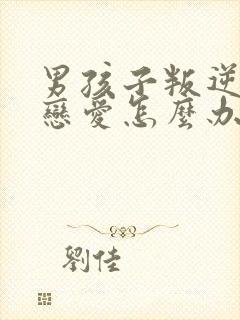 男孩子叛逆
戀愛怎麼办
劉佳